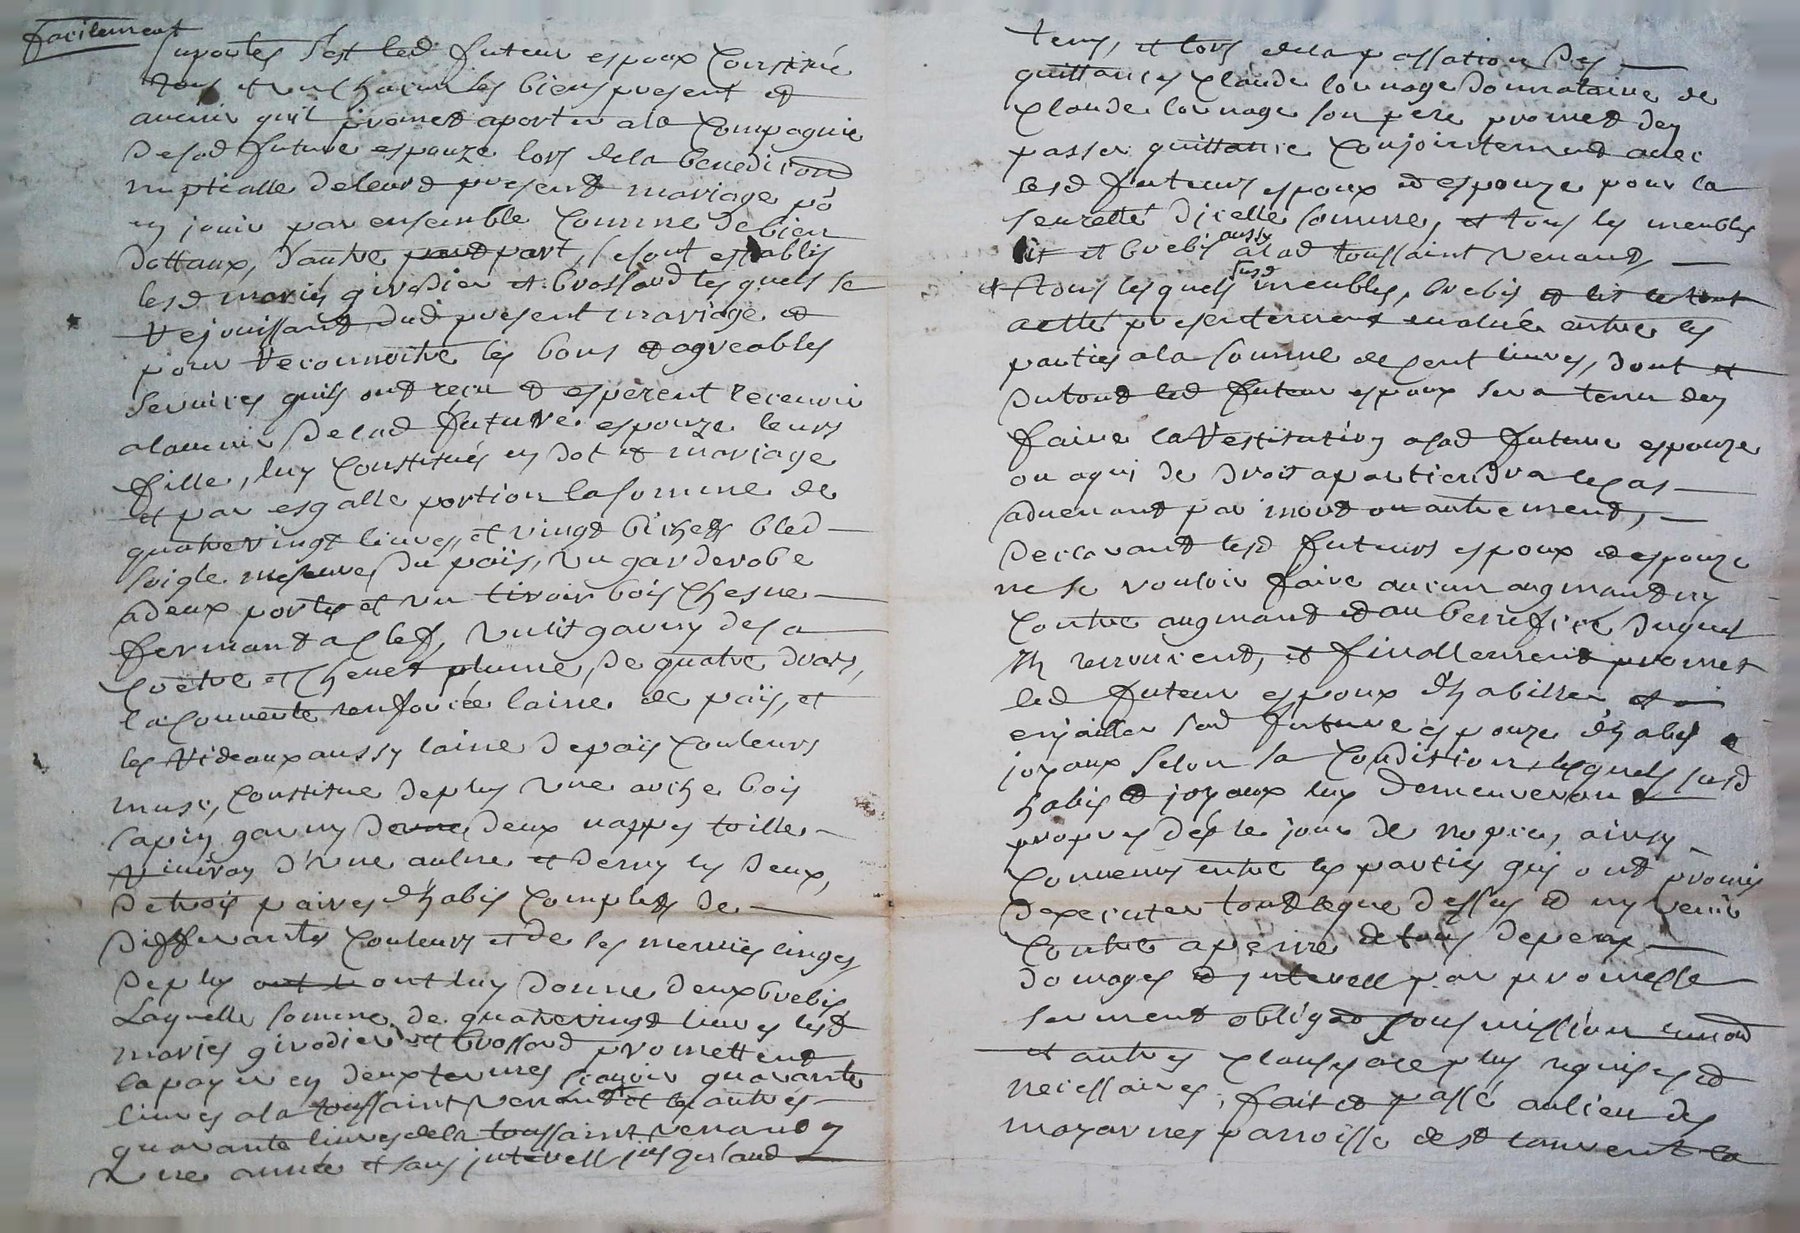 facilement
suportes s'est led futeur espoux Constitué
tous et un chacun ses biens present et
auenir quil promet aporter a la Compagnie
de sad future espouze lors de la benediction
nuptialle de leurd present mariage po
en jouir par ensemble Comme de bien
dottaux, d'autre part, se sont establis
lesd mariés girodier et brossard lesquels se
rejouissant dud present mariage et
pour reconnoitre les bons et agreables
seruices quils ont reçu et esperent receuoir
alauenir de lad future espouze leurs
fille, luy Constitués en dot et mariage
et par esgalle portion la somme de
quatrevingt liures, et vingt bichets bled
seigle mesure du païs, un garderobe
a deux portes et un tiroir bois chesne
fermant a clef, un lit garny de sa
Coëtre et Cheuet plume, de quatre draps,
la Couuerte renforcée laine de païs, et
les rideaux aussy laine de païs Couleurs
musc, Constitue de plus une arche bois
sapin garny de deux nappes toille
d'une aulne et demy les deux,
de trois paires d'habis Complets de
differantes Couleurs et de ses menus linges
de plus ont luy donne deux brebis
Laquelle somme de quatrevingt liures lesd
mariés girodier et brossard promettent
la payer en deux termes sçauoir quarante
liures a la toussaint venant et les autres
quarante liures de la toussaint venant en
une année et sans interest jusqu'aud
tems, et lors de la passation des
quittances Claude lornage donnataire de
Claude lornage son pere promet den
passer quittance Conjointement auec
lesd futeurs espoux et espouze pour la
seurette d'icelle somme, et tous les meubles
lit et brebis aussy a lad toussaint venant,
et tous lesquels susd meubles, brebis
a etté presentement eualué entre les
parties a la somme de sent liures, dont et
du tout led futeur espoux sera tenu den
faire la restitution a sad future espouze
ou a qui de droit apartiendra le cas
aduenant par mort ou autrement,
declarant lesd futeurs espoux et espouze
ne se vouloir faire aucun augmant ny
Contre augmant et au benefice duquel
ils renoncent, et finallement promet
led futeur espoux d'habiller et
enjailler sad future espouze d'habis et
joyaux selon sa Condition, lesquels susd
habis et joyaux luy demeureront
propres dés le jour de nopces, ainsy
Conuenus entre les parties qui ont promis
dexecuter tout ce que dessus et ny venir
Contre a peine de tous depens
domages et interest par promesse
serment obligaon soumission renond
et autres Clauses a ce plus requises et
necessaires, fait et passé au lieu des
mayarnes parroisse de st taurent la